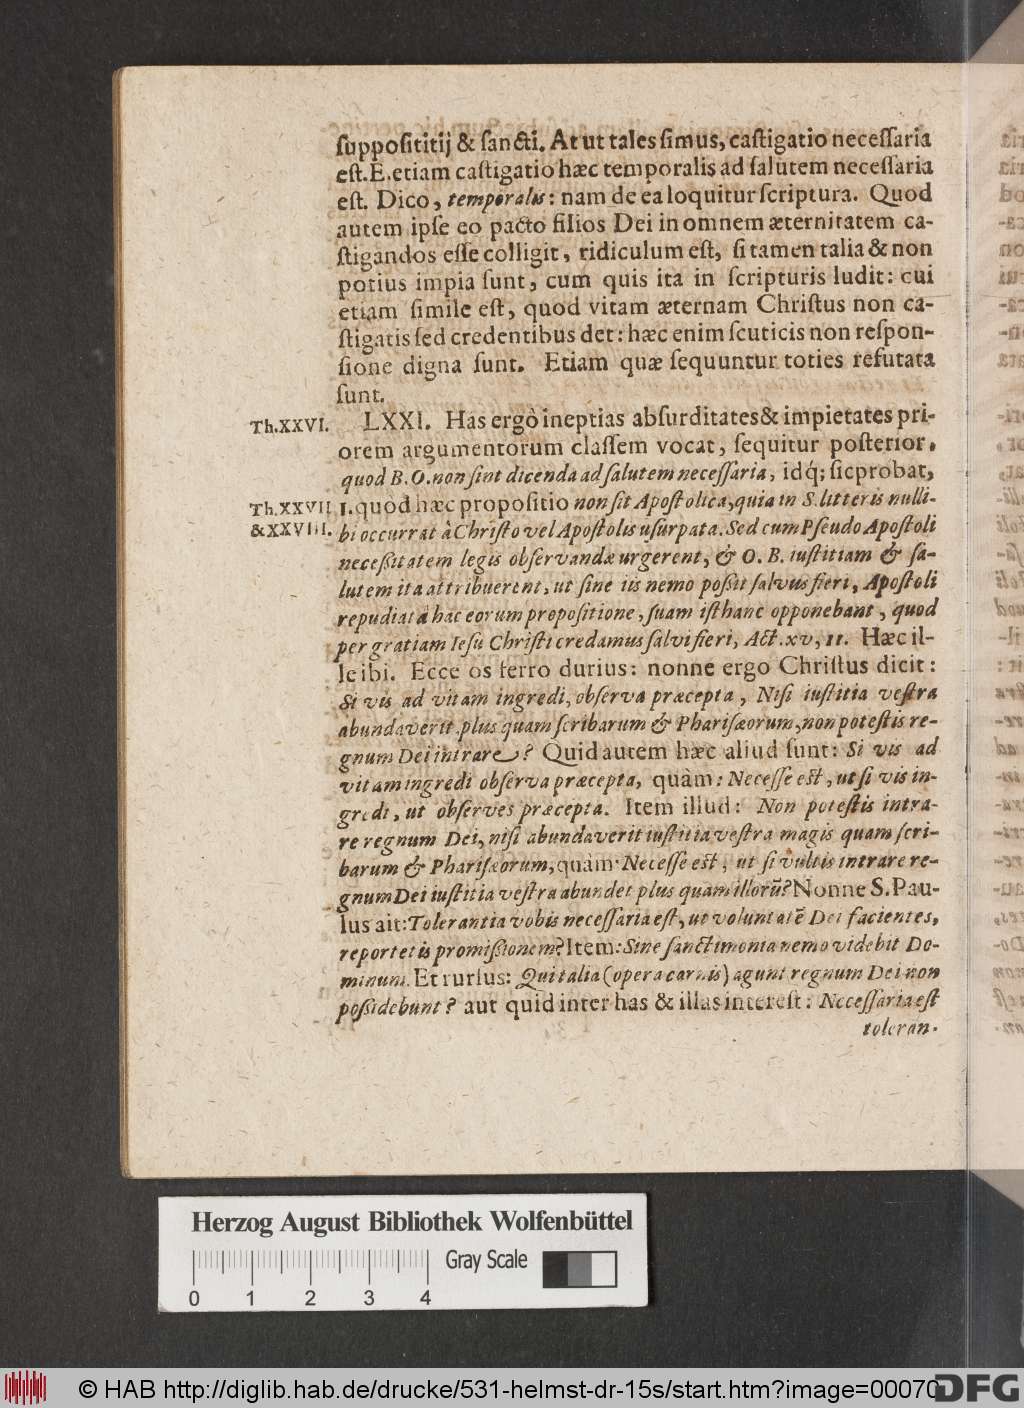 ſuppoſititij & ſancti. At ut tales ſimus, caſtigatio neceſſaria
eſt. E. etiam caſtigatio hæc temporalis ad ſalutem neceſſaria
eſt. Dico, temporalis: nam de ea loquitur ſcriptura. Quod
autem ipſe eo pacto filios Dei in omnem æternitatem ca-
ſtigandos eſſe colligit, ridiculum eſt, ſi tamen talia & non
potius impia ſunt, cum quis ita in ſcripturis ludit: cui
etiam ſimile eſt, quod vitam æternam Chriſtus non ca-
ſtigatis ſed credentibus det: hæc enim ſcuticis non reſpon-
ſione digna ſunt. Etiam quæ ſequuntur toties refutata
ſunt.
Th.XXVI. LXXI. Has ergò ineptias abſurditates & impietates pri-
orem argumentorum claſſem vocat, ſequitur poſterior,
quod B. O. non ſint dicenda ad ſalutem neceſſaria, idq́; ſic probat,
Th.XXVII 1. quòd hæc propoſitio non ſit Apoſtolica, quia in S. litteris nulli-
&XXVIII. bi occurrat à Chriſto vel Apoſtolis uſurpata. Sed cum Pſeudo Apoſtoli
neceßitatem legis obſervandæ urgerent, & O. B. iuſtitiam & ſa-
lutem ita attribuerent, ut ſine iis nemo poſſit ſalvus fieri, Apoſtoli
repudiatâ hac eorum propoſitione, ſuam iſthanc opponebant, quod
per gratiam Ieſu Chriſti credamus ſalvi fieri, Act. xv, 11. Hæc il-
le ibi. Ecce os ferro durius: nonne ergo Chriſtus dicit:
Si vis ad vitam ingredi, obſerva præcepta, Niſi iuſtitia veſtra
abundaverit plus quam ſcribarum & Phariſæorum, non poteſtis re-
gnum Dei intrare? Quid autem hæc aliud ſunt: Si vis ad
vitam ingredi obſerva præcepta, quàm: Neceſſe eſt, ut ſi vis in-
gredi, ut obſerves præcepta. Item illud: Non poteſtis intra-
re regnum Dei, niſi abundaverit iuſtitia veſtra magis quam ſcri-
barum & Phariſæorum, quàm: Neceſſe eſt, ut ſi vultis intrare re-
gnum Dei iuſtitia veſtra abundet plus quam illorū? Nonne S. Pau-
lus ait: Tolerantia vobis neceſſaria eſt, ut voluntatē Dei facientes,
reportetis promißionem? Item: Sine ſanctimonia nemo videbit Do-
minum. Et rurſus: Qui talia (opera carnis) agunt regnum Dei non
poßidebunt? aut quid inter has & illas intereſt: Neceſſaria eſt
toleran-
Herzog August Bibliothek Wolfenbüttel
Gray Scale
0 1 2 3 4
© HAB http://diglib.hab.de/drucke/531-helmst-dr-15s/start.htm?image=00070
DFG